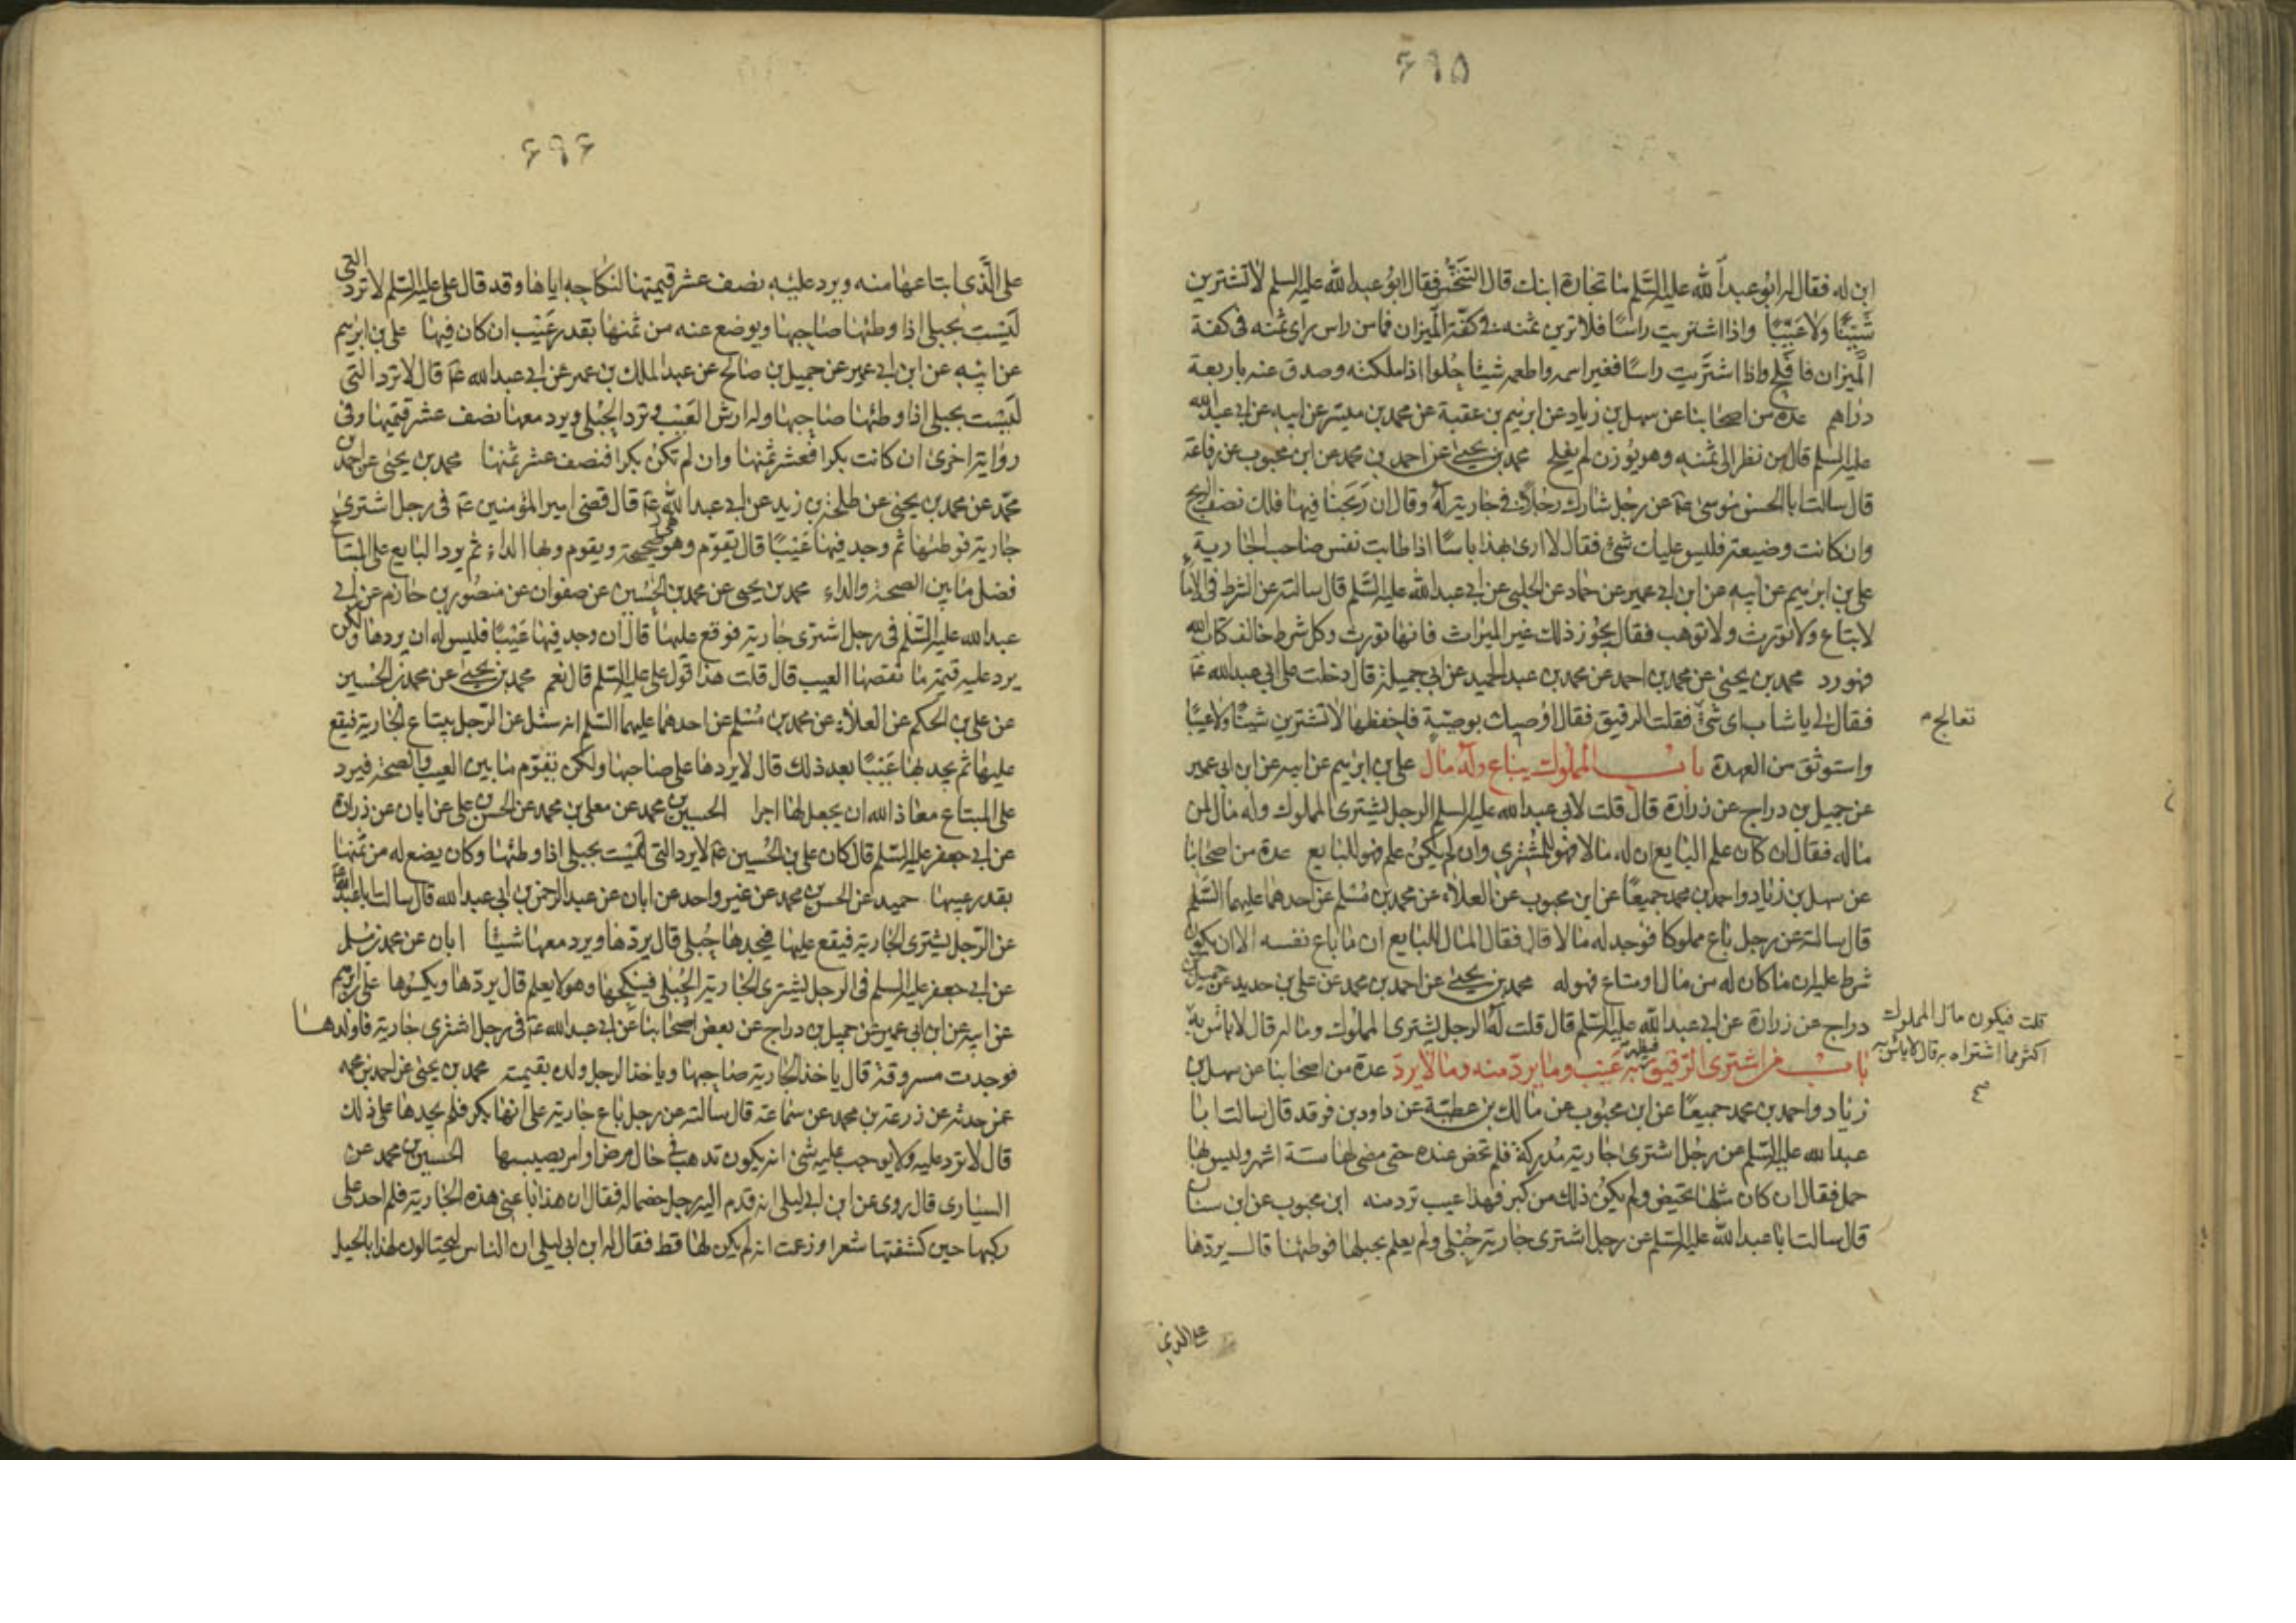 ۶۹۵
ابن له فقال له ابو عبد الله عليه السلم ما تجارة ابنك قال التنخس فقال ابو عبد الله عليه السلم لا تشترين
شينا ولا عيبا واذا اشتريت راسا فلا ترين ثمنه في كفة الميزان فما من راس راى ثمنه في كفة
الميزان فافلح واذا اشتريت راسا فغير اسمه واطعمه شيئا حلوا اذا ملكته وصدق عنه باربعة
دراهم عدة من اصحابنا عن سهل بن زياد عن ابرهيم بن عقبة عن محمد بن ميسر عن ابيه عن ابي عبد الله
عليه السلم قال من نظر الى ثمنه وهو يوزن لم يفلح محمد بن يحيى عن احمد بن محمد عن ابن محبوب عن رفاعة
قال سالت ابا الحسن موسى ع عن رجل شارك رجلا في جارية له وقال ان ربحنا فيها فلك نصف الربح
وان كانت وضيعة فليس عليك شئ فقال لا ارى بهذا باسا اذا طابت نفس صاحب الجارية
على بن ابرهيم عن ابيه عن ابن ابي عمير عن حماد عن الحلبي عن ابي عبد الله عليه السلم قال سالته عن الشرط في الاماء
لا بتاع ولا تورث ولا توهب فقال يجوز ذلك غير الميراث فانها تورث وكل شرط خالف كتاب الله
فهو رد محمد بن يحيى عن محمد بن احمد عن محمد بن عبد الحميد عن ابي جميلة قال دخلت على ابي عبد الله ع
فقال لي يا شاب اى شئ فقلت الرقيق فقال اوصيك بوصية فاحفظها لا تشترين شينا ولا عيبا
تعالج م
واستوثق من العهدة باب المملوك يباع وله مال على بن ابرهيم عن ابيه عن ابن ابي عمير
عن جميل بن دراج عن زرارة قال قلت لابي عبد الله عليه السلم الرجل يشترى المملوك وله مال لمن
ماله فقال ان كان علم البايع ان له مالا فهو للمشترى وان لم يكن علم فهو للبايع عدة من اصحابنا
عن سهل بن زياد واحمد بن محمد جميعا عن ابن محبوب عن العلاء عن محمد بن مسلم عن احدهما عليهما السلم
قال سالته عن رجل باع مملوكا فوجد له مالا قال فقال المال للبايع ان ما باع نفسه الا ان يكون
شرط عليه ان ما كان له من مال او متاع فهو له محمد بن يحيى عن احمد بن محمد عن على بن حديد عن جميل بن
دراج عن زرارة عن ابي عبد الله عليه السلم قال قلت له الرجل يشترى المملوك وماله قال لا باس به
قلت فيكون مال المملوك
اكثر مما اشتراه به قال لا باس به
صح
باب من اشترى الرقيق فيظهر به عيب وما يرد منه وما لا يرد عدة من اصحابنا عن سهل بن
زياد واحمد بن محمد جميعا عن ابن محبوب عن مالك بن عطية عن داود بن فرقد قال سالت ابا
عبد الله عليه السلم عن رجل اشترى جارية مدركة فلم تحض عنده حتى مضى لها ستة اشهر وليس لها
حمل فقال ان كان مثلها تحيض ولم يكن ذلك من كبر فهذا عيب ترد منه ابن محبوب عن ابن سنان
قال سالت ابا عبد الله عليه السلم عن رجل اشترى جارية حبلى ولم يعلم بحبلها فوطئها قال يردها
على الذي
۶۹۶
على الذى ابتاعها منه ويرد عليه نصف عشر قيمتها لنكاحه اياها وقد قال على عليه السلم لا ترد التي
ليست بحبلى اذا وطئها صاحبها ويوضع عنه من ثمنها بقدر عيب ان كان فيها على بن ابرهيم
عن ابيه عن ابن ابي عمير عن جميل بن صالح عن عبد الملك بن عمير عن ابي عبد الله ع قال لا ترد التي
ليست بحبلى اذا وطئها صاحبها وله ارش العيب وترد الحبلى ويرد معها نصف عشر قيمتها وفى
رواية اخرى ان كانت بكرا فعشر ثمنها وان لم تكن بكرا فنصف عشر ثمنها محمد بن يحيى عن احمد بن
محمد عن محمد بن يحيى عن طلحة بن زيد عن ابي عبد الله ع قال قضى امير المؤمنين ع فى رجل اشترى
جارية فوطئها ثم وجد فيها عيبا قال تقوم وهى صحيحة ويقوم وبها الداء ثم يرد البايع على المبتاع
فضل ما بين الصحة والداء محمد بن يحيى عن محمد بن الحسين عن صفوان عن منصور بن حازم عن ابي
عبد الله عليه السلم فى رجل اشترى جارية فوقع عليها قال ان وجد فيها عيبا فليس له ان يردها ولكن
يرد عليه قيمة ما نقصها العيب قال قلت هذا قول على عليه السلم قال نعم محمد بن يحيى عن محمد بن الحسين
عن على بن الحكم عن العلاء عن محمد بن مسلم عن احدهما عليهما السلم انه سئل عن الرجل يبتاع الجارية فيقع
عليها ثم يجد بها عيبا بعد ذلك قال لا يردها على صاحبها ولكن تقوم ما بين العيب والصحة فيرد
على المبتاع معاذ الله ان يجعل لها اجرا الحسين بن محمد عن معلى بن محمد عن الحسن بن على عن ابان عن زرارة
عن ابي جعفر عليه السلم قال كان على بن الحسين ع لا يرد التي ليست بحبلى اذا وطئها وكان يضع له من ثمنها
بقدر عيبها حميد عن الحسن بن محمد عن غير واحد عن ابان عن عبد الرحمن بن ابي عبد الله قال سالت ابا عبد الله ع
عن الرجل يشترى الجارية فيقع عليها فيجدها حبلى قال يردها ويرد معها شيئا ابان عن محمد بن مسلم
عن ابي جعفر عليه السلم فى الرجل يشترى الجارية الحبلى فينكحها وهو لا يعلم قال يردها ويكسوها على بن ابرهيم
عن ابيه عن ابن ابي عمير عن جميل بن دراج عن بعض اصحابنا عن ابي عبد الله ع فى رجل اشترى جارية فاولدها
فوجدت مسروقة قال ياخذ الجارية صاحبها وياخذ الرجل ولده بقيمته محمد بن يحيى عن احمد بن محمد
عمن حدثه عن زرعة بن محمد عن سماعة قال سالته عن رجل باع جارية على انها بكر فلم يجدها على ذلك
قال لا ترد عليه ولا يوجب عليه شئ انه يكون تذهب فى حال مرض او امر يصيبها الحسين بن محمد عن
السيارى قال روى عن ابن ابي ليلى انه قدم اليه رجل خصما له فقال ان هذا باعني هذه الجارية فلم اجد على
ركبها حين كشفتها شعرا وزعمت انه لم يكن لها قط فقال له ابن ابي ليلى ان الناس ليحتالون لهذا بالحيل